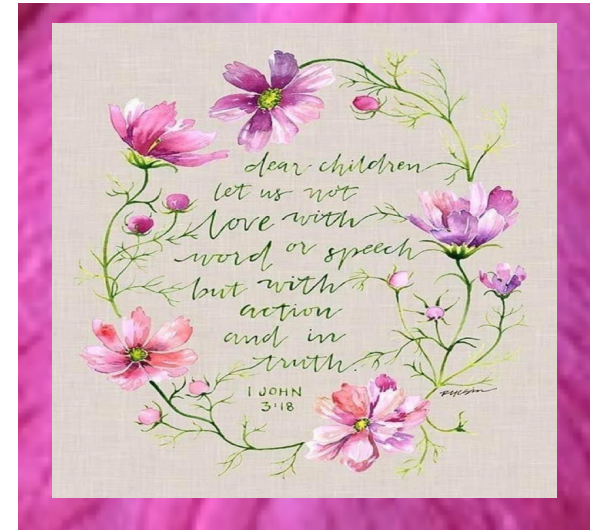 dear children
let us not
love with
word or speech
but with
action
and in
truth.
1 JOHN
3:18